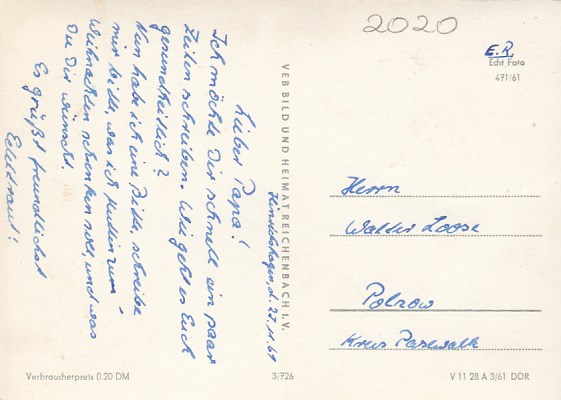 Hinrichshagen, d. 27.11.61
Lieber Papa!
Ich möchte Dir schnell ein paar
Zeilen schreiben. Wie geht es Euch
gesundheitlich?
Nun habe ich eine Bitte, schreibe
mir bitte, was ich zum
Weihnachten schenken soll, und was
Du Dir wünscht.
Es grüßt freundlichst
Edeltraut!
VEB BILD UND HEIMAT REICHENBACH I. V.
2020
E.R.
Echt Foto
471/61
Herrn
Walter Loose
Polzow
Kreis Pasewalk
Verbraucherpreis 0.20 DM
3/726
V 11 28 A 3/61 DDR